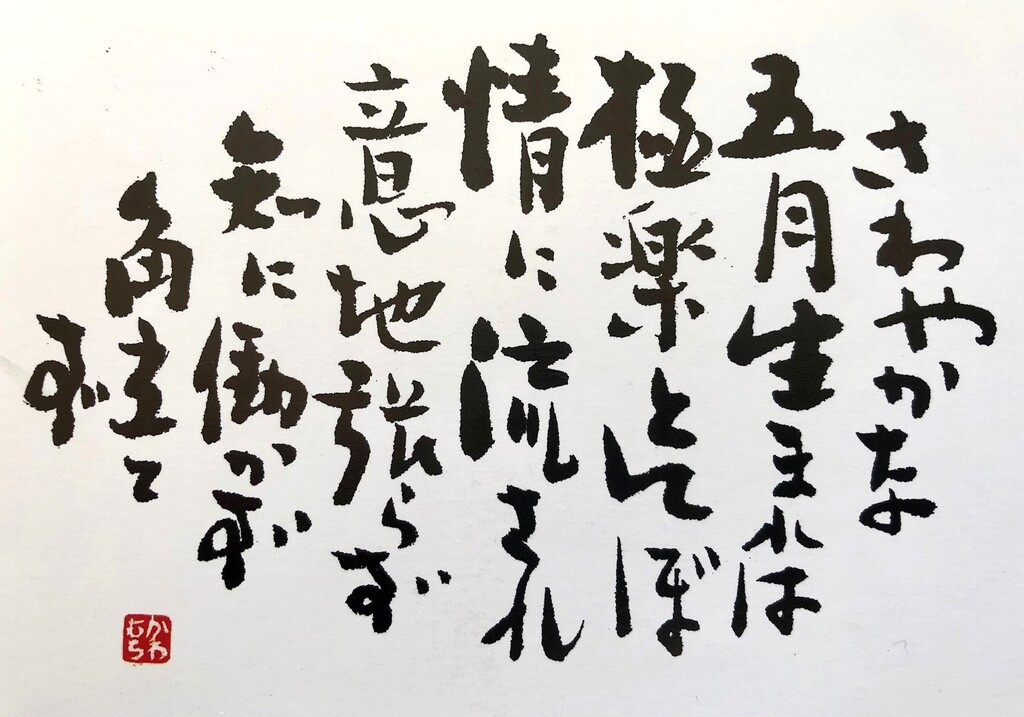 さわやかな
五月生まれは
極楽とんぼ
情に流され
意地張らず
知に働かず
角立て
ず
かわ
むら